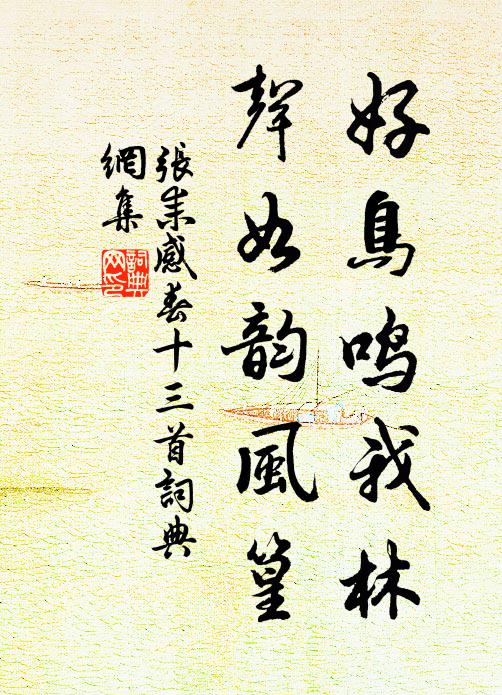 好鳥鳴我林
聲如韵風篁
張耒感春十三首詞典
網集
詞典
网印